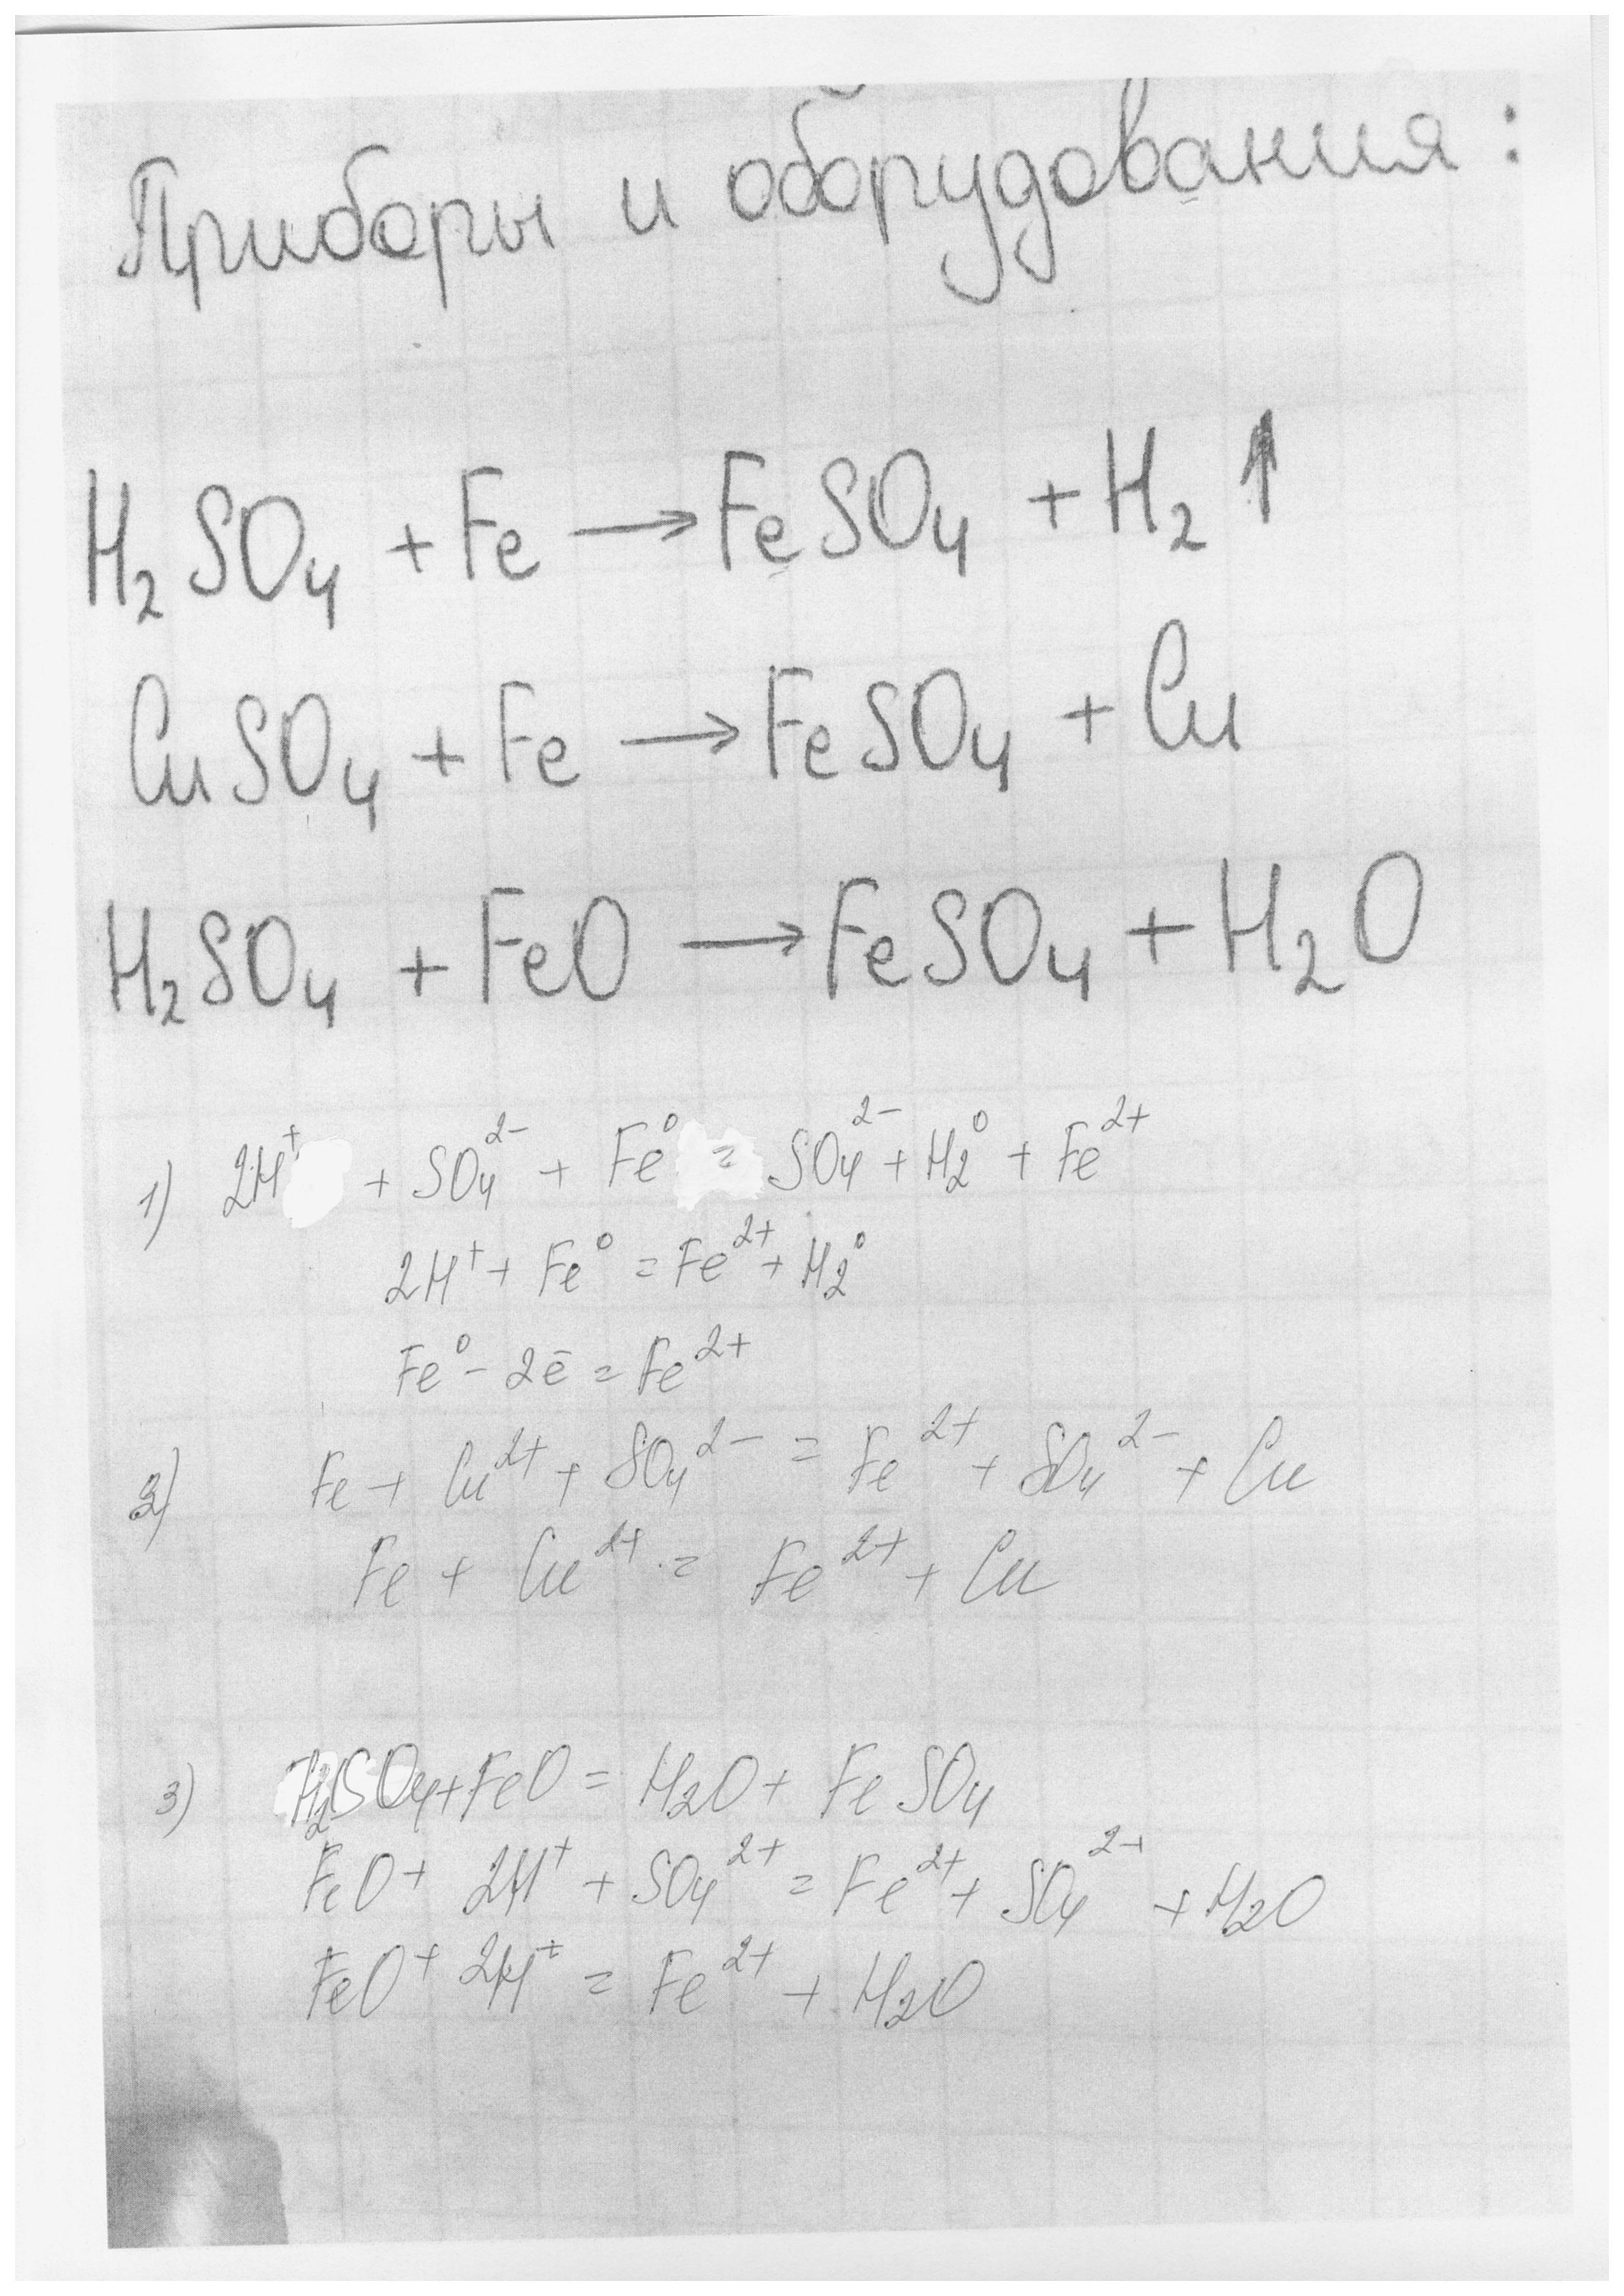 Приборы и оборудования:
H₂SO₄ + Fe → FeSO₄ + H₂ ↑
CuSO₄ + Fe → FeSO₄ + Cu
H₂SO₄ + FeO → FeSO₄ + H₂O
1) 2H⁺ + SO₄²⁻ + Fe⁰ = SO₄²⁻ + H₂⁰ + Fe²⁺
2H⁺ + Fe⁰ = Fe²⁺ + H₂⁰
Fe⁰ - 2ē = Fe²⁺
2) Fe + Cu²⁺ + SO₄²⁻ = Fe²⁺ + SO₄²⁻ + Cu
Fe + Cu²⁺ = Fe²⁺ + Cu
3) H₂SO₄ + FeO = H₂O + FeSO₄
FeO + 2H⁺ + SO₄²⁺ = Fe²⁺ + SO₄²⁺ + H₂O
FeO + 2H⁺ = Fe²⁺ + H₂O